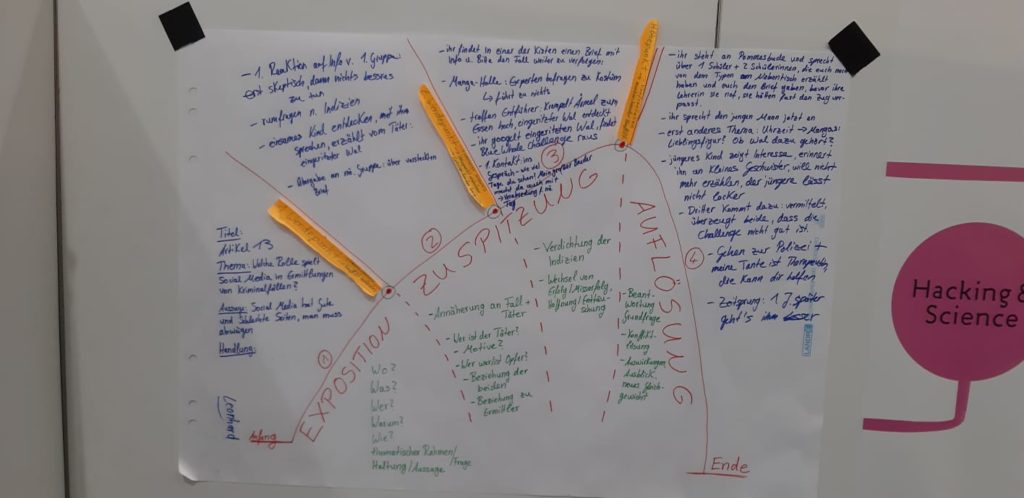 - 1. Reaktion auf Info v. 1. Gruppe:
erst skeptisch, dann nichts besseres
zu tun
- rumfragen n. Indizien
- einsames Kind entdecken, mit ihm
sprechen, erzählt vom Täter:
eingeritzter Wal
- Übergabe an nä. Gruppe: über versteckten
Brief
- ihr findet in einer der Kisten einen Brief mit
Info u. Bitte den Fall weiter zu verfolgen:
- Manga-Halle: Experten befragen zu Kostüm
↳ führt zu nichts
- treffen Entführer: Krempelt Ärmel zum
Essen hoch, eingeritzter Wal entdeckt
- ihr googelt eingeritzten Wal, findet
Blue Whale Challenge raus
- 1. Kontakt ins
Gespräch - wie viel
Tage du schon? Mein großer Bruder
macht da auch mit
→ Verabredung f. nä.
Tag
- ihr steht an Pommesbude und sprecht
über 1 Schüler + 2 Schülerinnen, die euch
von dem Typen am Nebentisch erzählt
haben und euch den Brief gaben, bevor ihre
Lehrerin sie rief, sie hätten fast den Zug ver-
passt.
- ihr sprecht den jungen Mann jetzt an
- erst anderes Thema: Uhrzeit → Mangas:
Lieblingsfigur? Ob Wal dazu gehört?
- jüngeres Kind zeigt Interesse, erinnert
ihn an kleines Geschwister, will nicht
mehr erzählen, der jüngere lässt
nicht locker
- Dritter kommt dazu: vermittelt,
überzeugt beide, dass die
Challenge nicht gut ist.
- Gehen zur Polizei +
meine Tante ist Therapeutin,
die kann dir helfen
- Zeitsprung: 1 J. später
geht's ihm
Titel:
Artikel 13
Thema: Welche Rolle spielt
Social Media in Ermittlungen
von Kriminalfällen?
Aussage: Social Media hat Gute
und Schlechte Seiten, man muss
abwägen
Handlung:
Leonhard
Anfang
1
EXPOSITION
Wo?
Was?
Wer?
Warum?
Wie?
thematischer Rahmen/
Haltung/Aussage/Frage
2
ZUSPITZUNG
- Annäherung an Fall +
Täter
- Wer ist der Täter?
- Motive?
- Wer war/ist Opfer?
- Beziehung der
beiden
- Beziehung zu
Ermittler
3
- Verdichtung der
Indizien
- Wechsel von
Erfolg/Misserfolg,
Hoffnung/Enttäu-
schung
AUFLÖSUNG
4
- Beant-
wortung
Grundfrage
- Konflikt-
lösung
- Auswirkungen,
Ausblick,
neues Gleich-
gewicht
Ende
LANDRÉ
Hacking &
Science